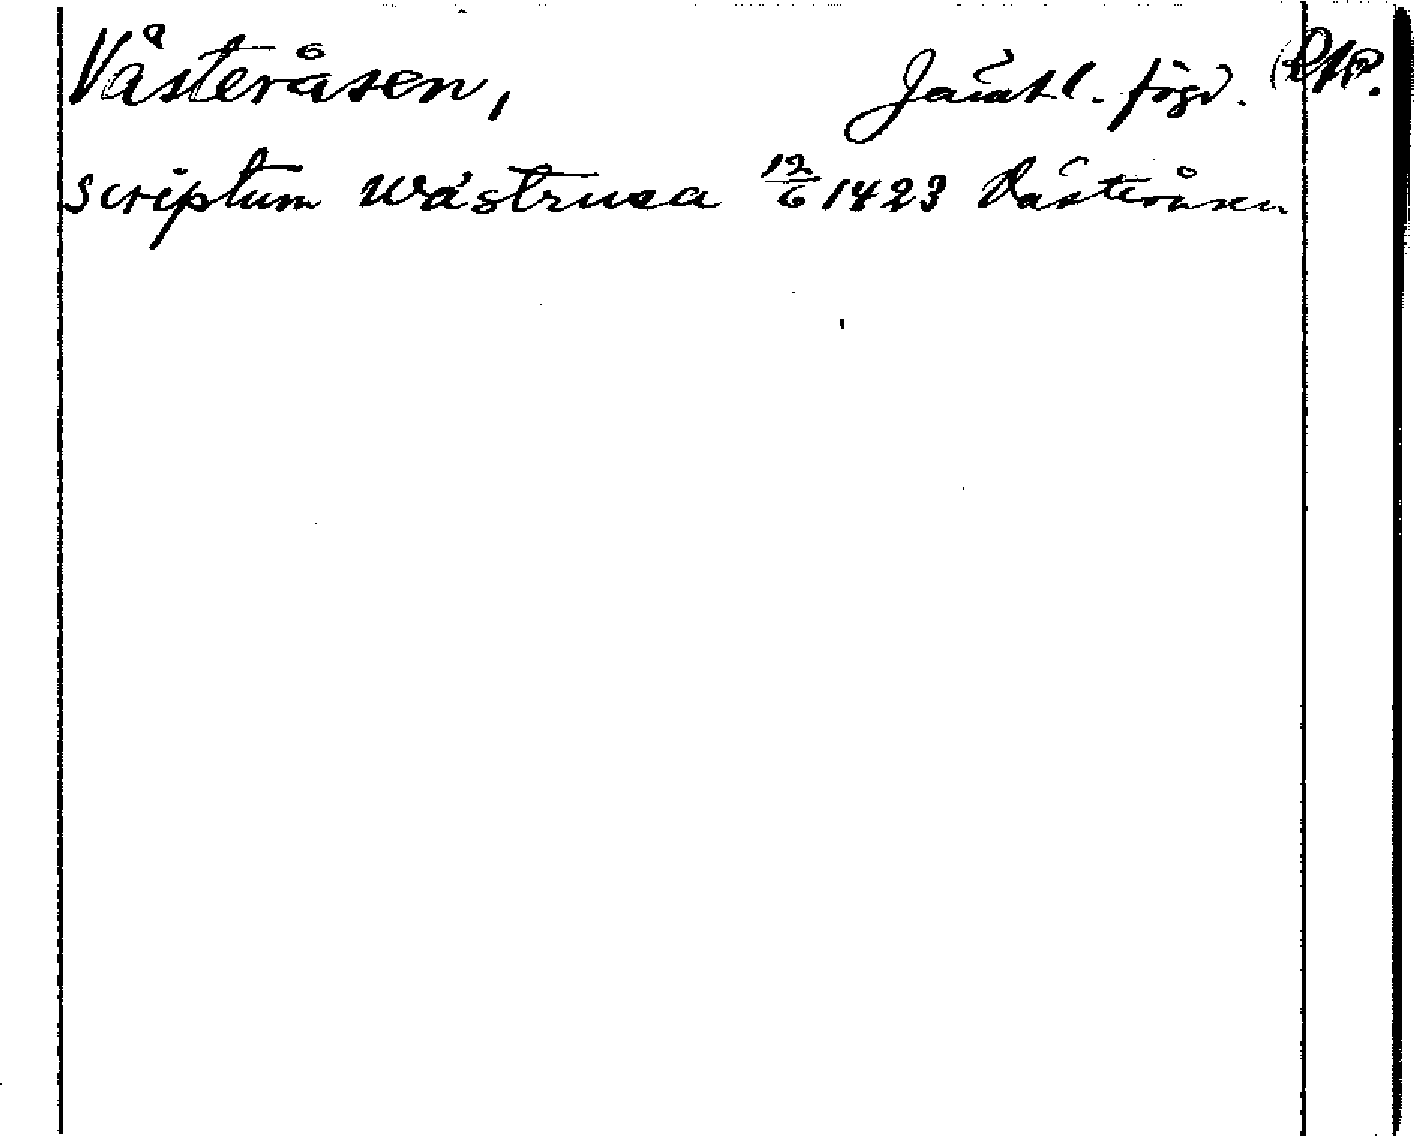 Västeråsen, Jämtl. fögd.
scriptum wästrusa 12/6 1423 Västeråsen